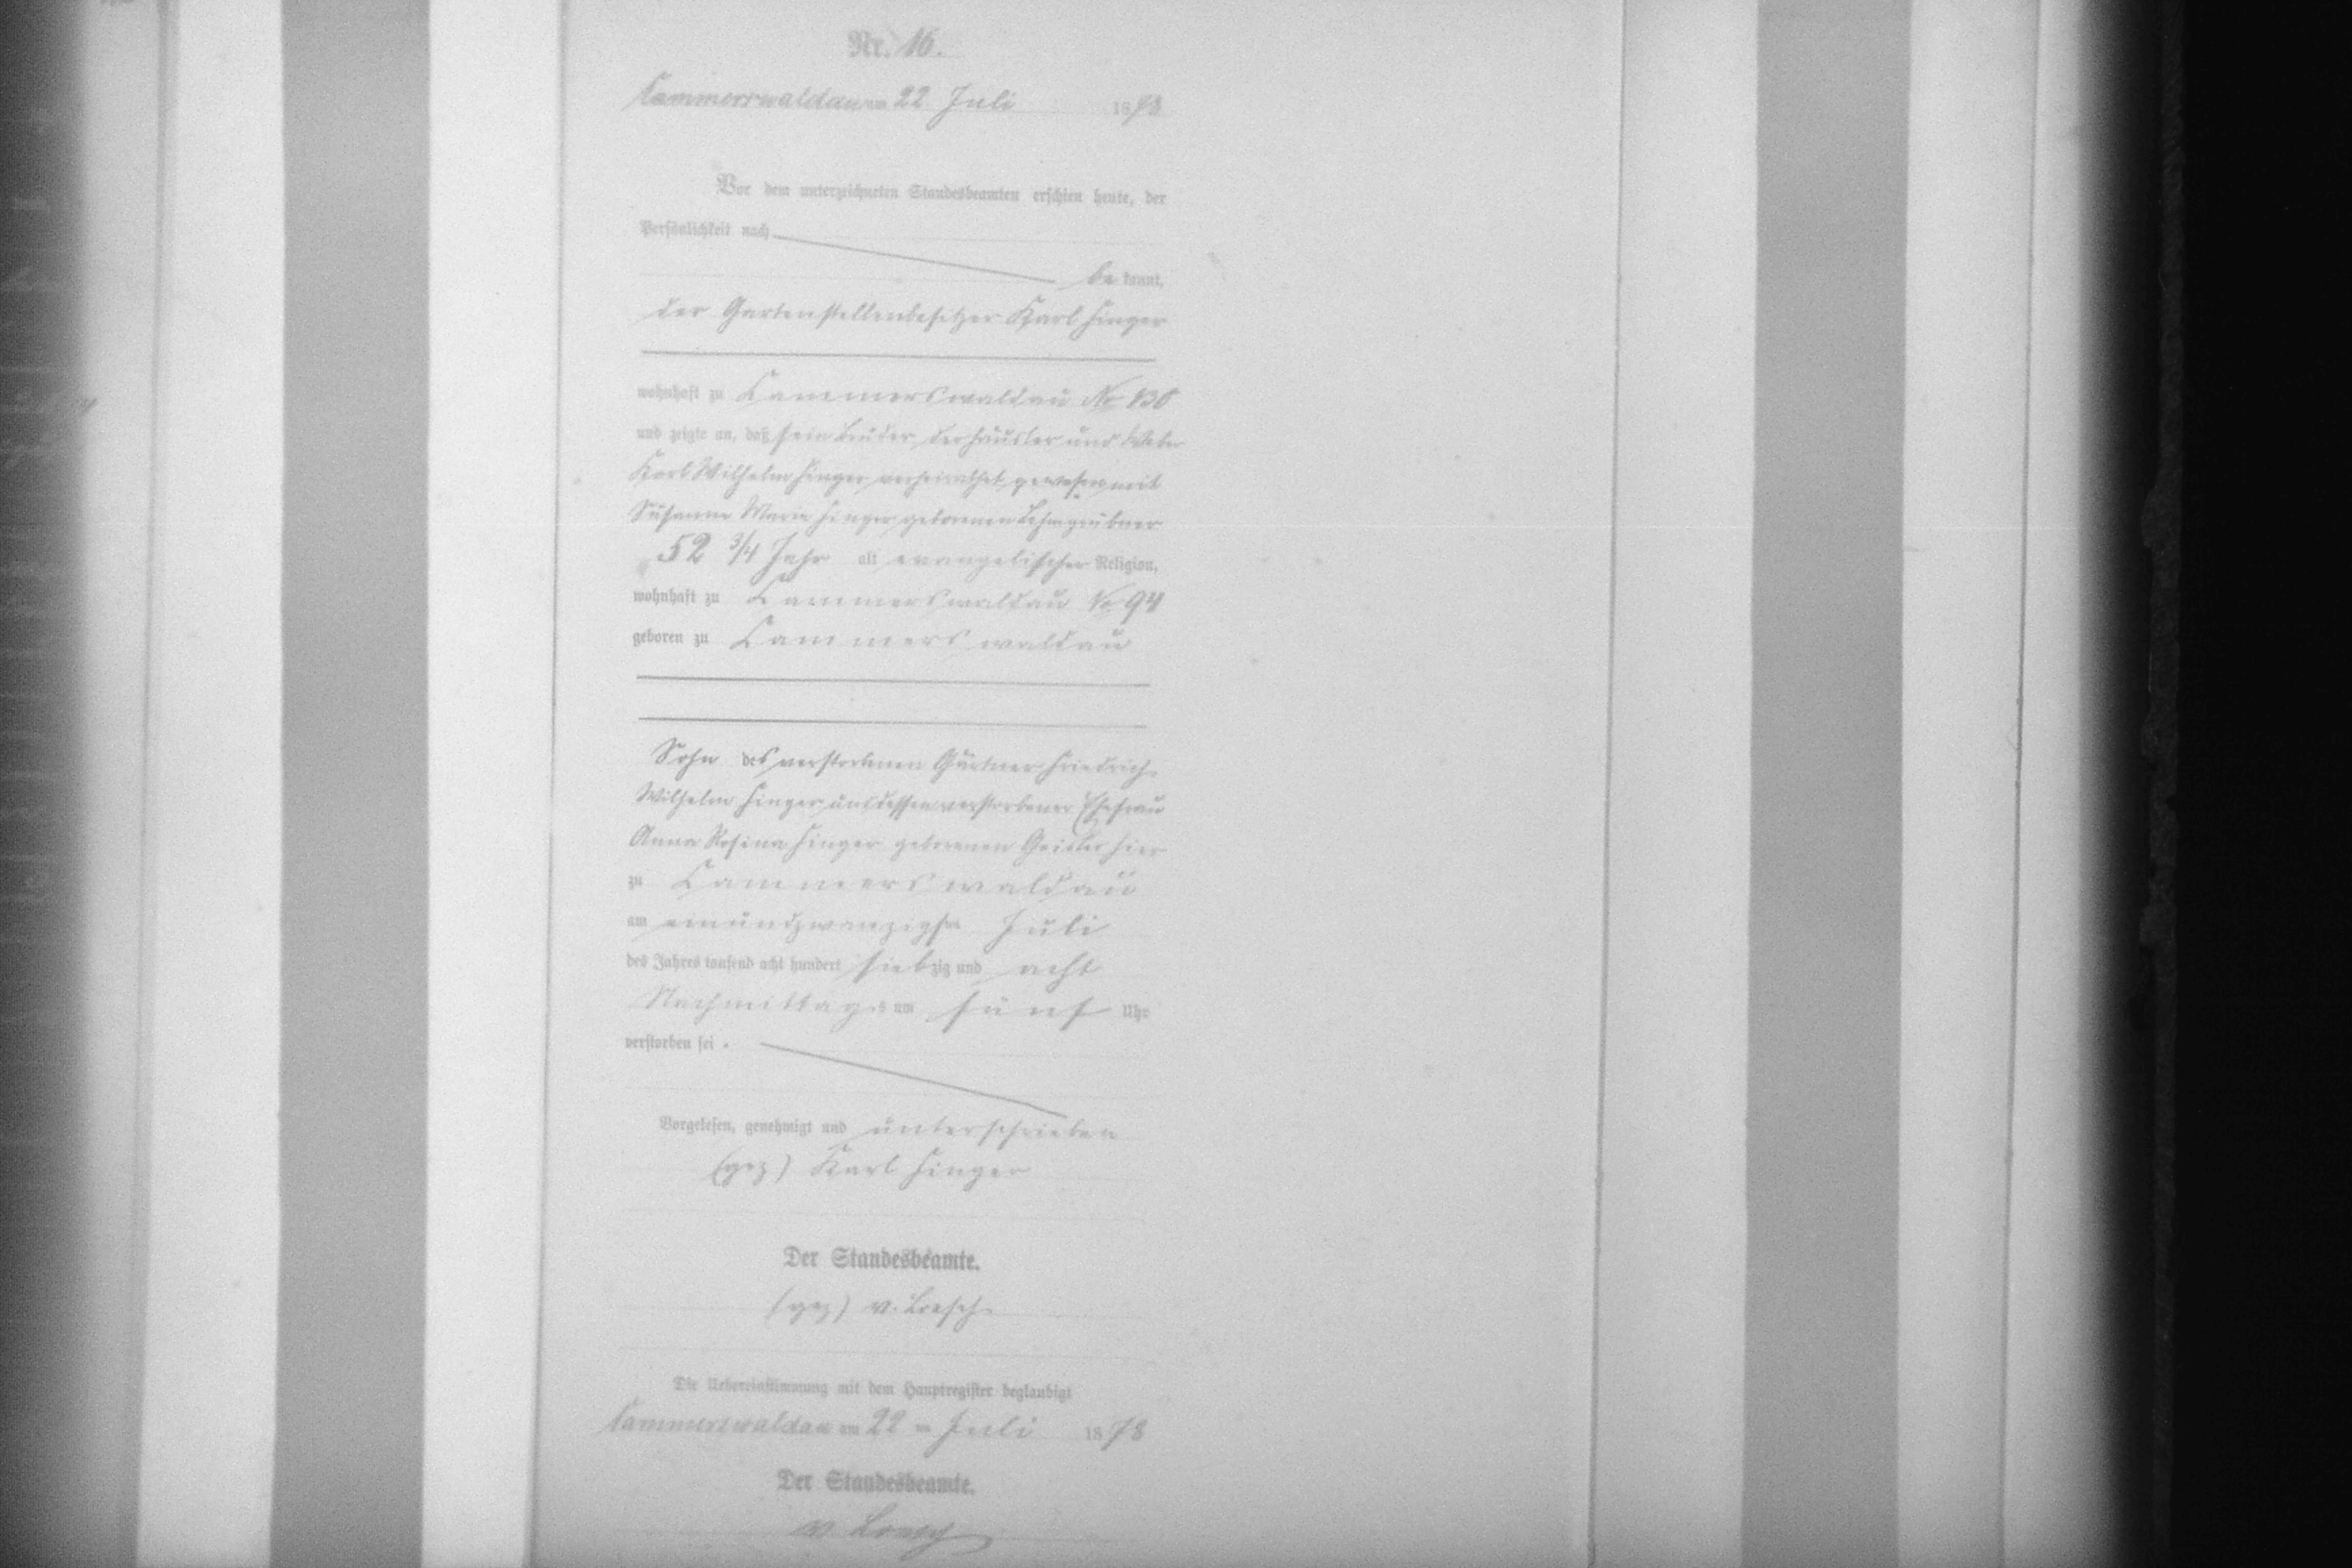 Nr. 16.
Cammerswaldau am 22 Juli 1878
Vor dem unterzeichneten Standesbeamten erschien heute, der
Persönlichkeit nach
be kannt,
der Gartenstellenbesitzer Karl Hinger
wohnhaft zu Cammerswaldau No 130
und zeigte an, daß sein Bruder, der Häusler und Weber
Karl Wilhelm Hinger verheirathet gewesen mit
Susanne Marie Hinger geborenen
52 3/4 Jahr alt evangelischer Religion,
wohnhaft zu Cammerswaldau No 94
geboren zu Cammerswaldau
Sohn des verstorbenen Gärtner Friedrich
Wilhelm Hinger und dessen verstorbener Ehefrau
Anna Rosina Hinger geborenen Geisler hier
zu Cammerswaldau
am einundzwanzigsten Juli
des Jahres tausend acht hundert siebzig und acht
Nachmittags um fünf Uhr
verstorben sei.
Vorgelesen, genehmigt und unterschrieben
(gez) Karl Hinger
Der Standesbeamte.
(gez) v. Loesch
Die Uebereinstimmung mit dem Hauptregister beglaubigt
Cammerswaldau am 22 ten Juli 1878
Der Standesbeamte.
v. Loesch